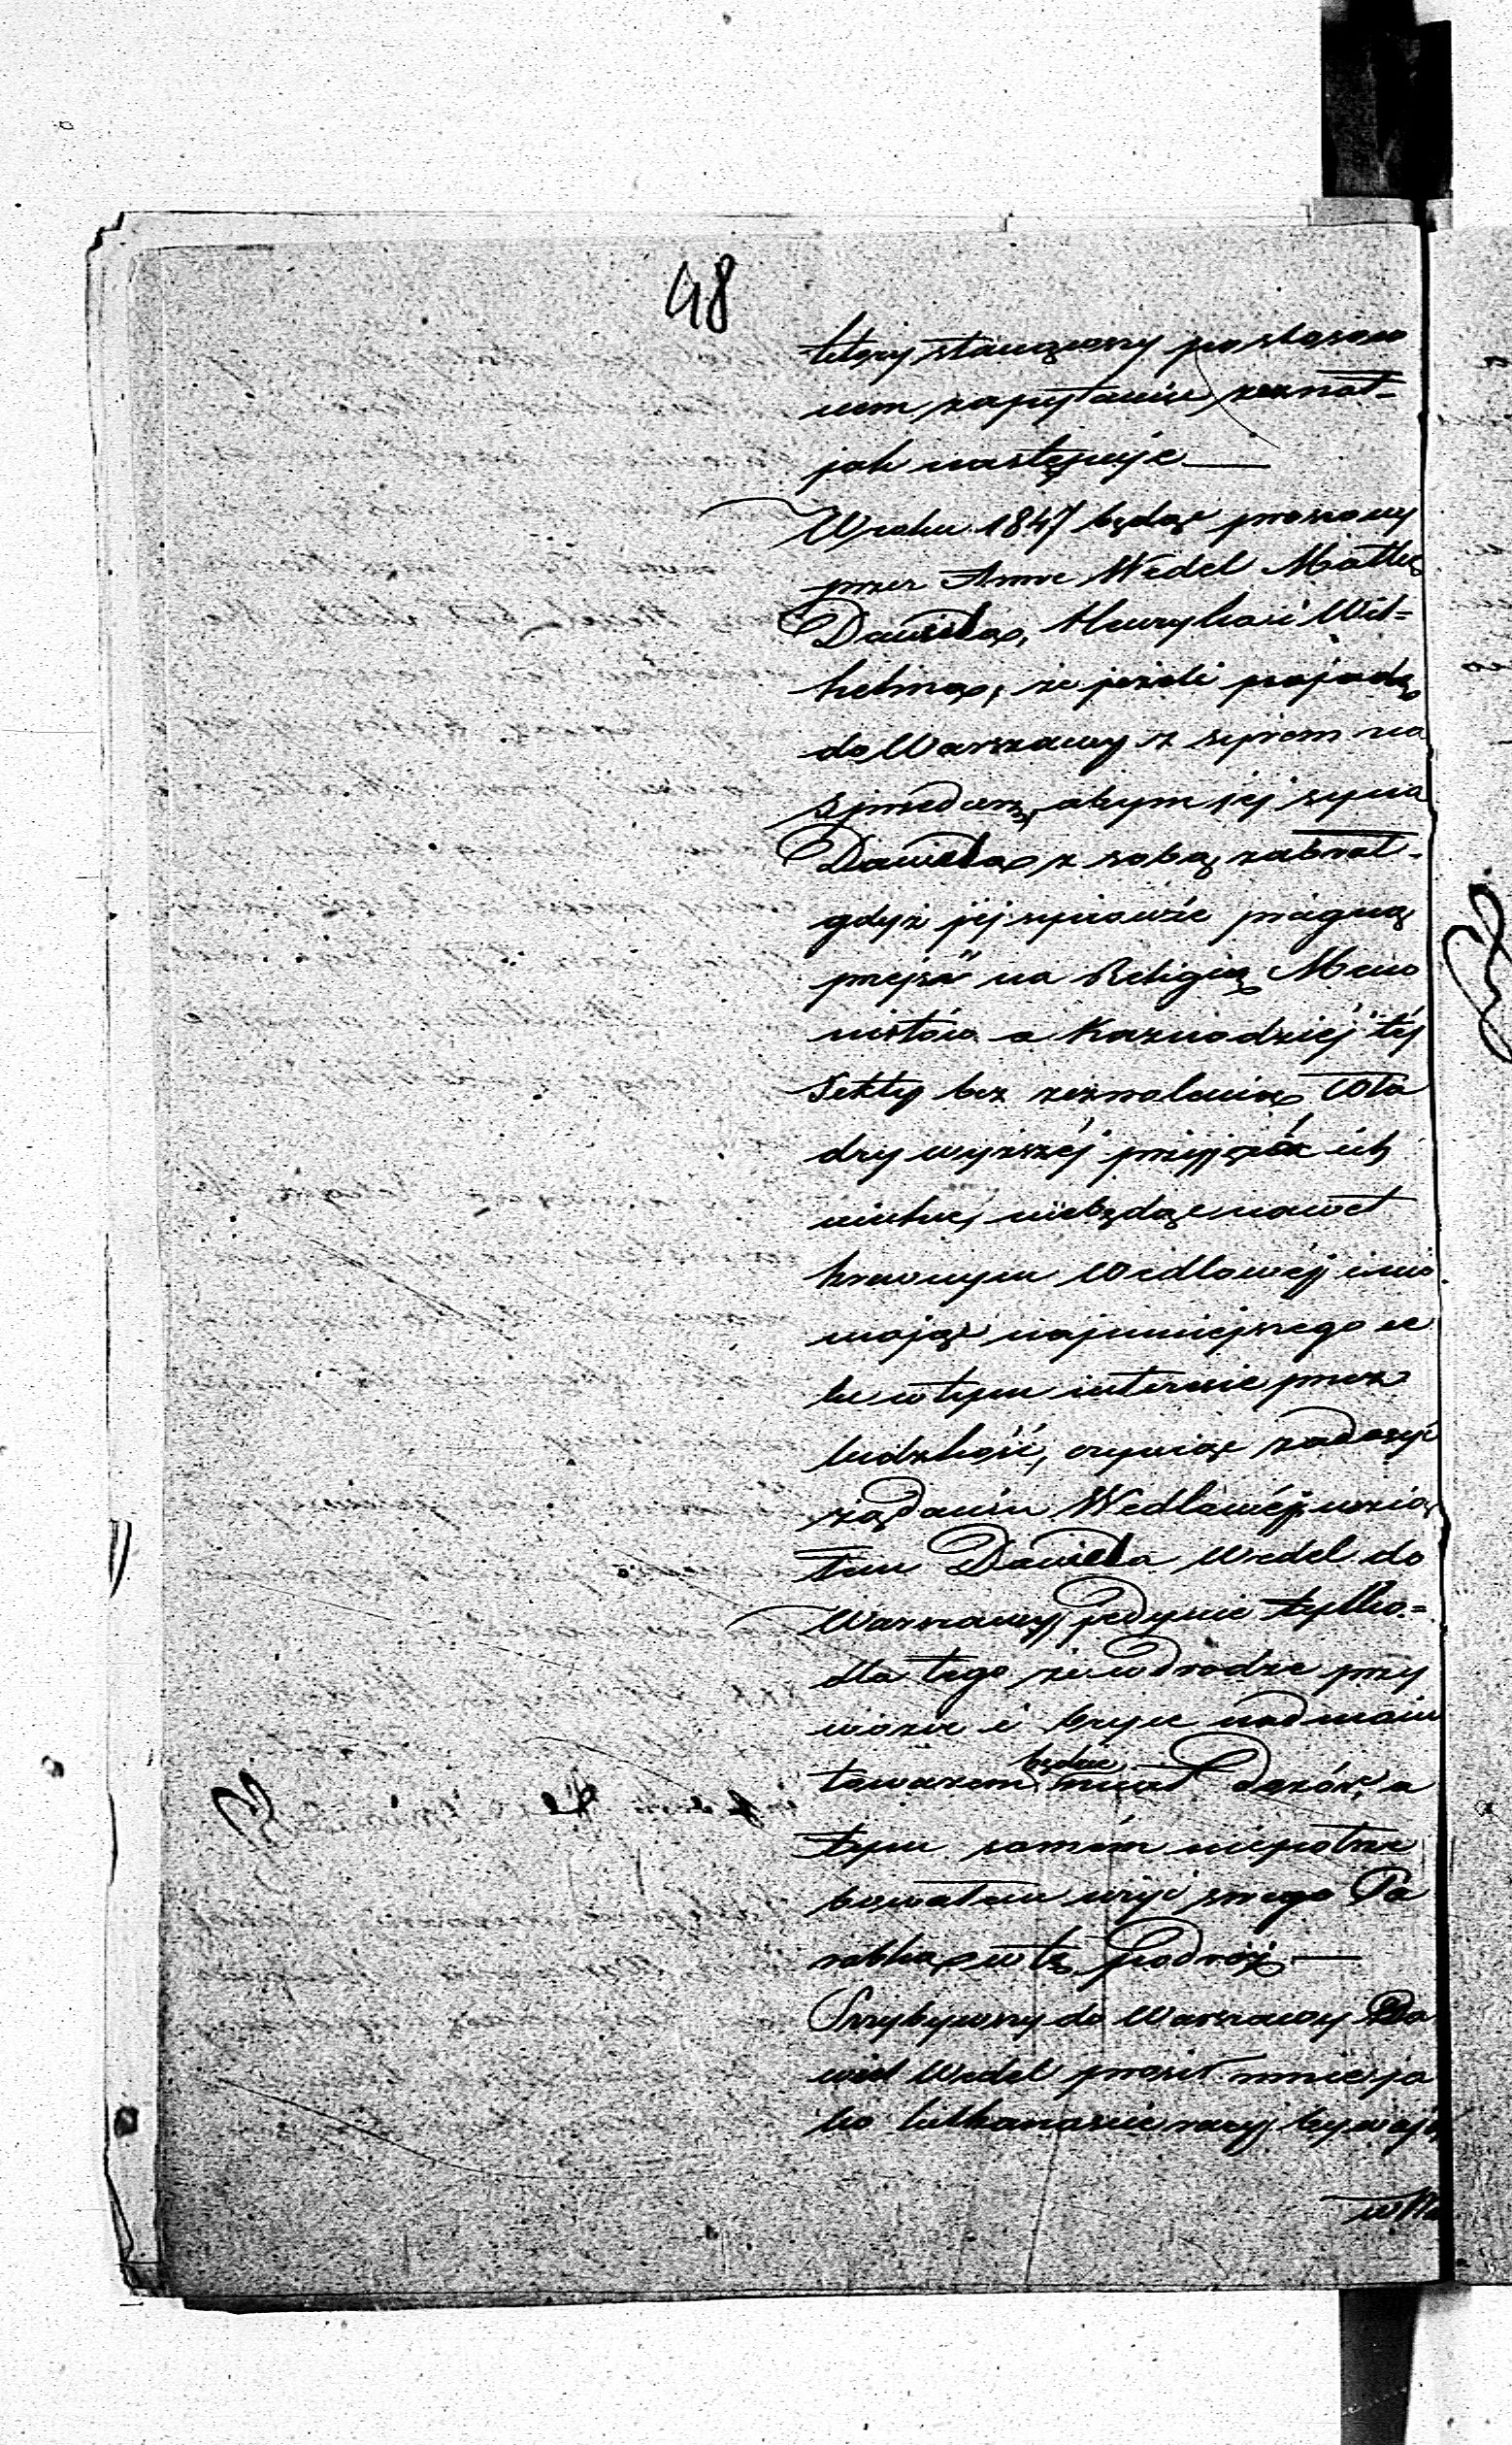 48
który stawiony po stosow
nem zapytaniu zeznał-
jak następuje —
W roku 1847 będąc proszony
przez Annę Wedel Matkę
Dawida, Henryka i Wil-
helma, że jeżeli pojadę
do Warszawy z syrem na
sprzedarz, abym jej syna
Dawida z sobą zabrał-
gdyż jej synowie pragną
przejść na Religią Meno
nistów a Kaznodziej téj
Sekty bez zezwolenia Wła
dzy wyższéj przyjąć ich
niechce, niebędąc nawet
krewnym Wedlowéj i nie
mając najmniejszego ce
lu w tym interesie przez
ludzkość, czyniąc zadosyć
żądaniu Wedlowéj wzią
łem Dawida Wedel do
Warszawy, jedynie tylko-
dla tego że w drodze przy
wozie i bryce nad moim
towarem będzie miał dozór, a
tym samém niepotrze
bowałem użyć swego Pa
robka w tę podróż —
Przybywszy do Warszawy Da
wid Wedel prosił mnie ja
ko kilkanaście razy bywają
w Wa